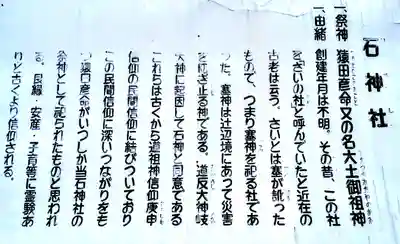 石神社
一、祭神 猿田彦命又の名大土御祖神
一、由緒 創建年月は不明。その昔、この社
をさいの社」と呼んでいたと近在の
古老は云う、さいとは塞が訛った
もので、つまり塞神を祀る社であ
った。塞神は辻辺境にあって災害
を防ぎ止る神である、道反大神岐
大神に起因して石神と同意である
これらは古くから道祖神信仰庚申
信仰の民間信仰に結びついており
この民間信仰に深いつながりをも
つ猿田彦命がいつしか当石神社の
祭神として祀られたものと思われ
る。良縁・安産・子育等に霊験あ
りと古くより信仰される。